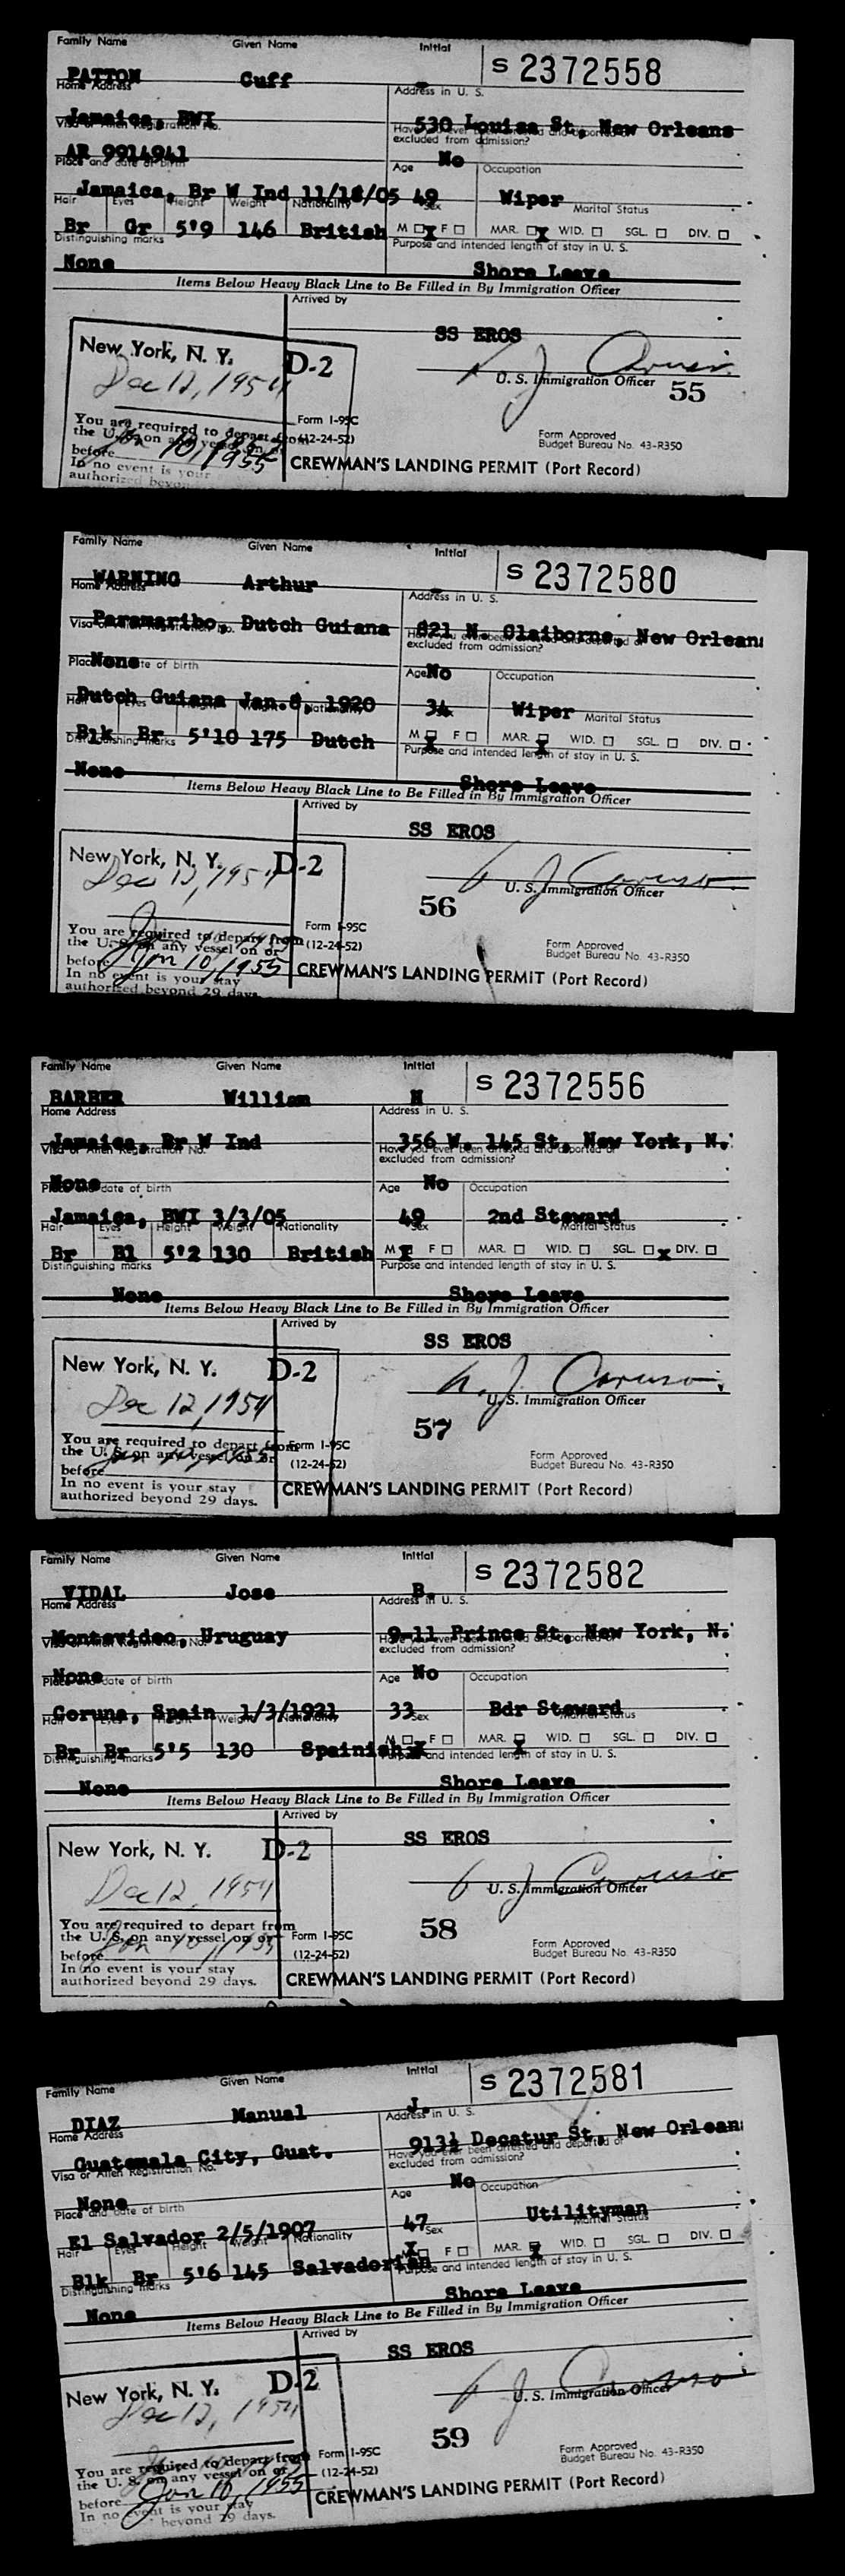 Family Name Given Name Initial S 2372558
PATTON Cuff -
Home Address Address in U. S.
Jamaica, BWI 530 Louisa St, New Orleans
Visa or Alien Registration No. Have you ever been arrested and deported or excluded from admission?
AR 9914941 No
Place and date of birth Age Occupation
Jamaica, Br W Ind 11/18/05 49 Wiper
Hair Eyes Height Weight Nationality Sex Marital Status
Br Gr 5'9 146 British M X F MAR. X WID. SGL. DIV.
Distinguishing marks Purpose and intended length of stay in U. S.
None Shore Leave
Items Below Heavy Black Line to Be Filled in By Immigration Officer
Arrived by
SS EROS
New York, N. Y. D-2
Dec 12, 1954 U. S. Immigration Officer 55
You are required to depart from Form I-95C
the U. S. on any vessel on or (12-24-52) Form Approved
before Jan 10, 1955 Budget Bureau No. 43-R350
In no event is your CREWMAN'S LANDING PERMIT (Port Record)
authorized beyon
Family Name Given Name Initial S 2372580
WARNING Arthur -
Home Address Address in U. S.
Paramaribo, Dutch Guiana 821 N. Claiborne, New Orleans
Visa or Alien Registration No. Have you ever been arrested and deported or excluded from admission?
None No
Place and date of birth Age Occupation
Dutch Guiana Jan.8, 1920 34 Wiper
Hair Eyes Height Weight Nationality Sex Marital Status
Blk Br 5'10 175 Dutch M X F MAR. X WID. SGL. DIV.
Distinguishing marks Purpose and intended length of stay in U. S.
None Shore Leave
Items Below Heavy Black Line to Be Filled in By Immigration Officer
Arrived by
SS EROS
New York, N. Y. D-2
Dec 12, 1954 J Caruso
U. S. Immigration Officer
56
You are required to depart from Form I-95C
the U. S. on any vessel on or (12-24-52) Form Approved
before Jan 10, 1955 Budget Bureau No. 43-R350
In no event is your stay CREWMAN'S LANDING PERMIT (Port Record)
authorized beyond 29 days.
Family Name Given Name Initial S 2372556
BARBER William H
Home Address Address in U. S.
Jamaica, Br W Ind 356 W. 145 St, New York, N.
Visa or Alien Registration No. Have you ever been arrested and deported or excluded from admission?
None No
Place and date of birth Age Occupation
Jamaica, BWI 3/3/05 49 2nd Steward
Hair Eyes Height Weight Nationality Sex Marital Status
Br Bl 5'2 130 British M X F MAR. WID. SGL. X DIV.
Distinguishing marks Purpose and intended length of stay in U. S.
None Shore Leave
Items Below Heavy Black Line to Be Filled in By Immigration Officer
Arrived by
SS EROS
New York, N. Y. D-2
Dec 12, 1954 J. Caruso
U. S. Immigration Officer
57
You are required to depart from Form I-95C
the U. S. on any vessel on or (12-24-52) Form Approved
before Budget Bureau No. 43-R350
In no event is your stay CREWMAN'S LANDING PERMIT (Port Record)
authorized beyond 29 days.
Family Name Given Name Initial S 2372582
VIDAL Jose B.
Home Address Address in U. S.
Montevideo, Uruguay 9-11 Prince St, New York, N.
Visa or Alien Registration No. Have you ever been arrested and deported or excluded from admission?
None No
Place and date of birth Age Occupation
Coruna, Spain 1/3/1921 33 Bdr Steward
Hair Eyes Height Weight Nationality Sex Marital Status
Br Br 5'5 130 Spainish X M F MAR. X WID. SGL. DIV.
Distinguishing marks Purpose and intended length of stay in U. S.
None Shore Leave
Items Below Heavy Black Line to Be Filled in By Immigration Officer
Arrived by
SS EROS
New York, N. Y. D-2
Dec 12, 1954 J Caruso
U. S. Immigration Officer
58
You are required to depart from Form I-95C
the U. S. on any vessel on or (12-24-52) Form Approved
before Jan 10, 1955 Budget Bureau No. 43-R350
In no event is your stay CREWMAN'S LANDING PERMIT (Port Record)
authorized beyond 29 days.
Family Name Given Name Initial S 2372581
DIAZ Manual J.
Home Address Address in U. S.
Guatemala City, Guat. 913½ Decatur St, New Orleans
Visa or Alien Registration No. Have you ever been arrested and deported or excluded from admission?
None No
Place and date of birth Age Occupation
El Salvador 2/5/1907 47 Utilityman
Hair Eyes Height Weight Nationality Sex Marital Status
Blk Br 5'6 145 Salvadorian X F MAR. X WID. SGL. DIV.
Distinguishing marks Purpose and intended length of stay in U. S.
None Shore Leave
Items Below Heavy Black Line to Be Filled in By Immigration Officer
Arrived by
SS EROS
New York, N. Y. D-2
Dec 12, 1954 J Caruso
U. S. Immigration Officer
59
You are required to depart from Form I-95C
the U. S. on any vessel on or (12-24-52) Form Approved
before Jan 10, 1955 Budget Bureau No. 43-R350
In no event is your stay CREWMAN'S LANDING PERMIT (Port Record)
beyond 29 days.